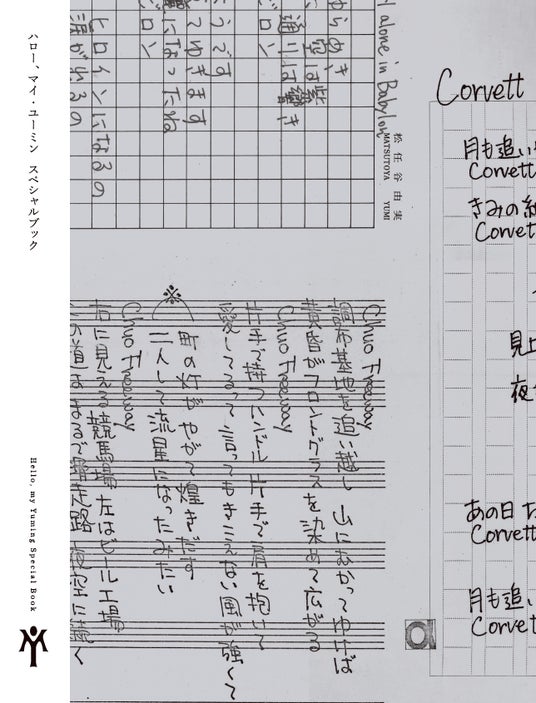 ハロー、マイ・ユーミン スペシャルブック
Hello, my Yuming Special Book
alone in Babylon
松任谷由実
MATSUTOYA YUMI
ゆらめき
空は紫
通りは響き
ロン
うです
てゆきます
になったね
ビロン
ヒロインになるの
涙がかれるの
Chuo Freeway
調布基地を追い越し 山にむかってゆけば
黄昏がフロントグラスを染めて広がる
Chuo Freeway
片手で持つハンドル 片手で肩を抱いて
愛してるって言ってもきこえない風が強くて
※
町の灯がやがて煌きだす
二人して流星になったみたい
Chuo Freeway
右に見える競馬場 左はビール工場
この道はまるで滑走路 夜空に続く
Corvett
月も追い
Corvett
きみの
Corvett
見上
夜
あの日
Corvett
月も追い
Corvett